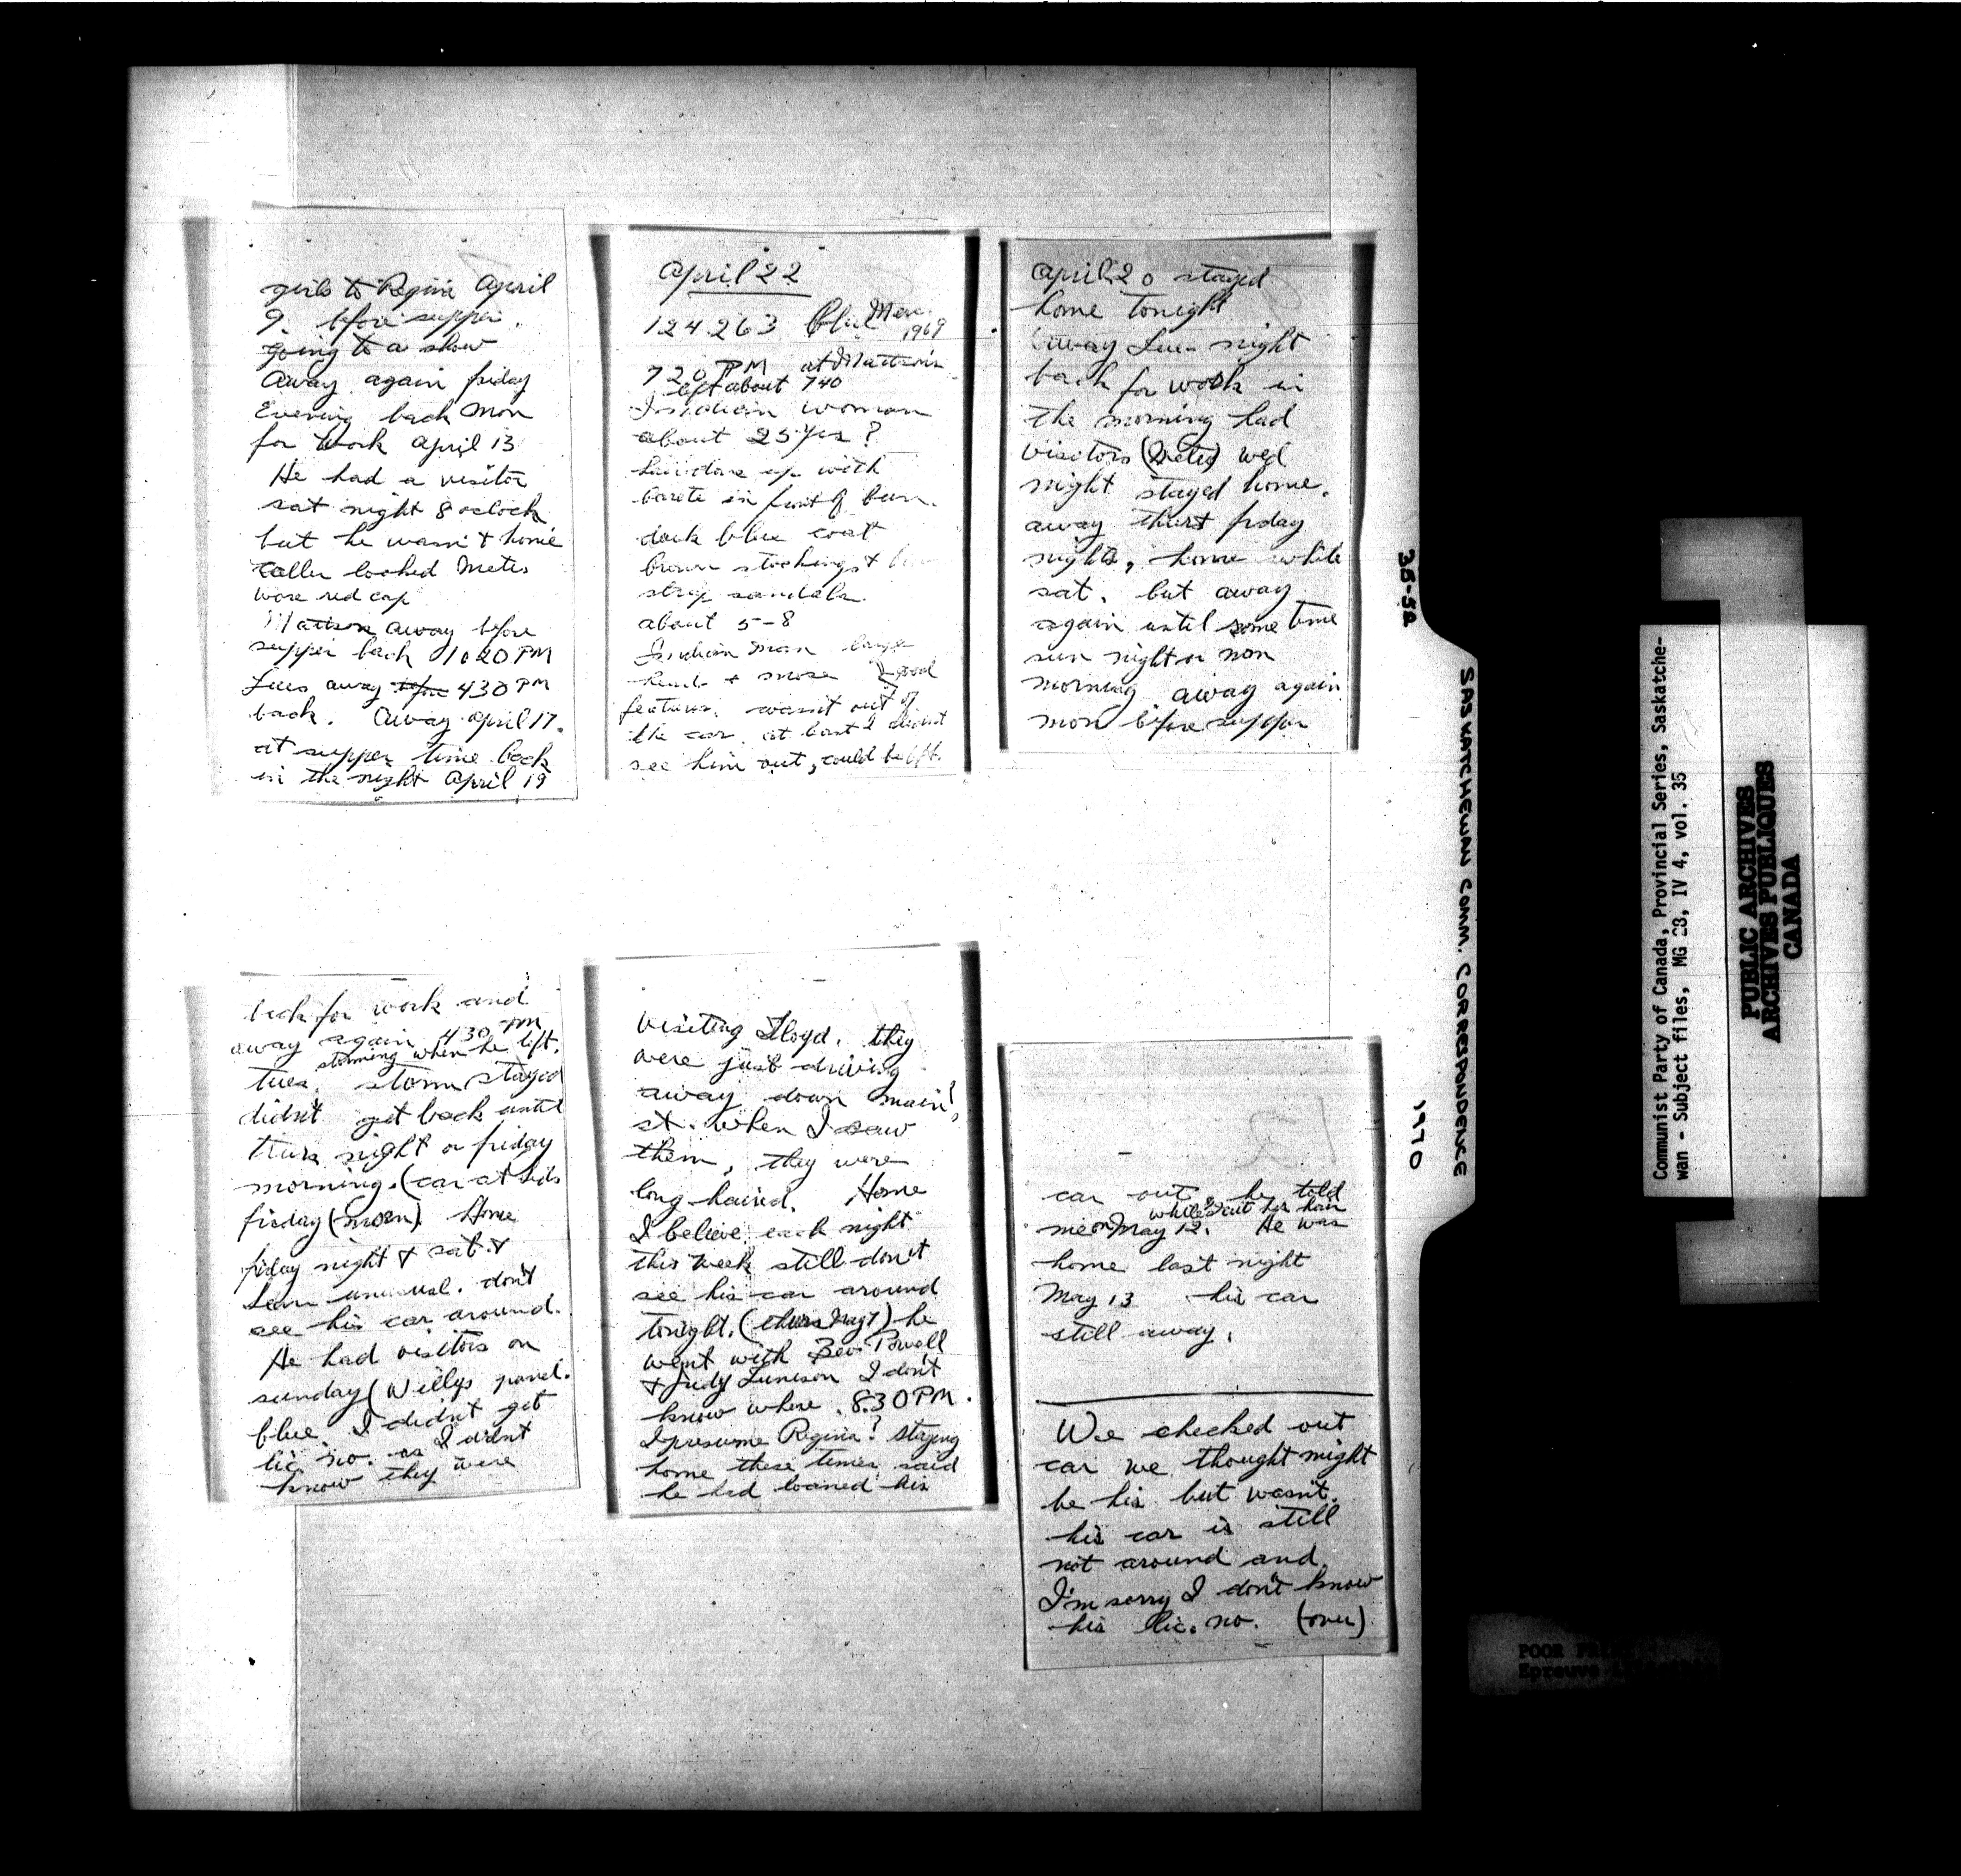 girls to Regina April
9. before supper.
going to a show
away again friday
Evening back Mon
for work April 13
He had a visitor
sat night 8 oclock
but he wasn't home
Caller looked Metis
wore red cap
Mattson away before
supper back 1020 PM
Tues away before 430 PM
back. Away April 17.
at supper time back
in the night April 19
April 22
124263 Blue Merc.
1969
720 PM at Mattson's
left about 740
Indian woman
about 25 yrs?
hair done up with
barete in front of bun.
dark blue coat
brown stockings &
strap sandals.
about 5-8
Indian man large
head & nose good
features. wasn't out of
the car, at least I didn't
see him out, could be 6ft.
April 20 stayed
home tonight
away Tues night
back for work in
the morning had
visitors (Metis) wed
night stayed home.
away thurs friday
nights, home while
sat. but away
again until some time
sun night or mon
morning away again
mon before supper
back for work and
away again 430 PM
storming when he left.
tues. storm stayed
didn't get back until
thurs night or friday
morning. (car at Sids
friday (morn). Home
friday night & sat. &
Sean unusual. don't
see his car around.
He had visitors on
sunday (Willys panel.
blue I didn't get
lic. no. as I didn't
know they were
visiting Lloyd. they
were just driving
away down main
st. when I saw
them, they were
long haired. Home
I believe each night
this week still don't
see his car around
tonight. (thurs May 7) he
went with Bev. Powell
& Judy I don't
know where. 8.30 PM.
I presume Regina? Staying
home these times said
he had loaned his
12
car out, he told
while I cut his hair
me on May 12. He was
home last night
May 13 his car
still away.
We checked out
car we thought might
be his but wasn't.
his car is still
not around and
I'm sorry I don't know
his lic. no. (over)
35-52
SASKATCHEWAN COMM. CORRESPONDENCE
1970
Communist Party of Canada, Provincial Series, Saskatche-
wan - Subject files, MG 28, IV 4, vol. 35
PUBLIC ARCHIVES
ARCHIVES PUBLIQUES
CANADA
POOR
Epreuve